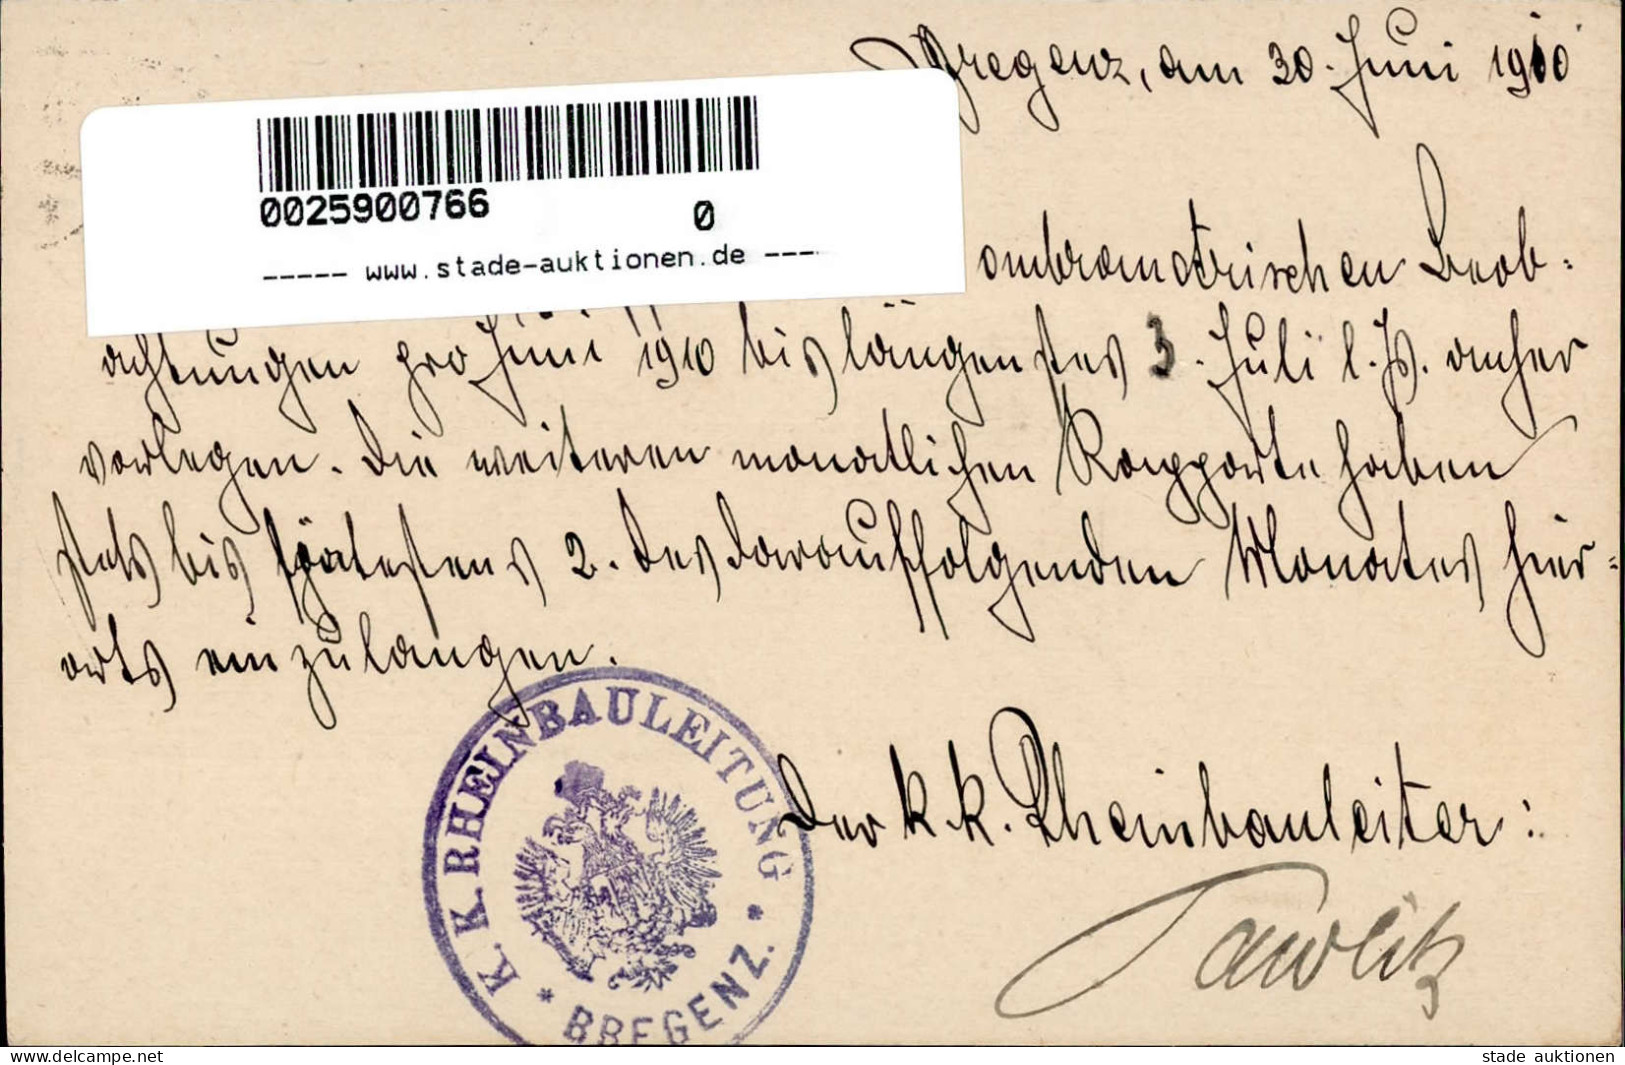 Bregenz, am 30. Juni 1910
0025900766 0
----- www.stade-auktionen.de ----
ombrometrischen Beob=
achtungen pro Juni 1910 bis längstens 3. Juli l. Js. anher
vorlegen. Die weiteren monatlichen Rapporte haben
stets bis spätestens 2. des darauffolgenden Monates hier=
orts einzulangen.
K. K. RHEINBAULEITUNG
* BREGENZ. *
Der k. k. Rheinbauleiter:
Pawlik
www.delcampe.net
stade auktionen